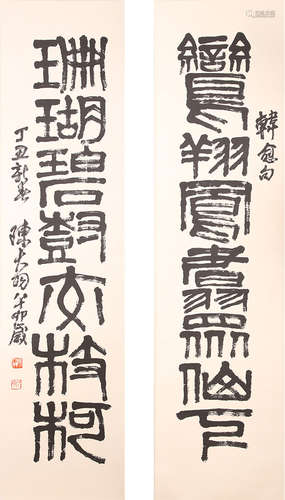 韓愈句
鸞翔鳳翥眾仙下
珊瑚碧樹交枝柯
丁丑新春 陳大羽